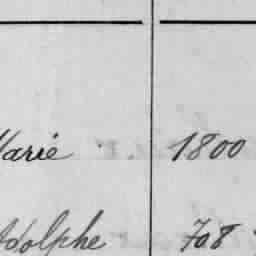 Marie 1800
Adolphe 708